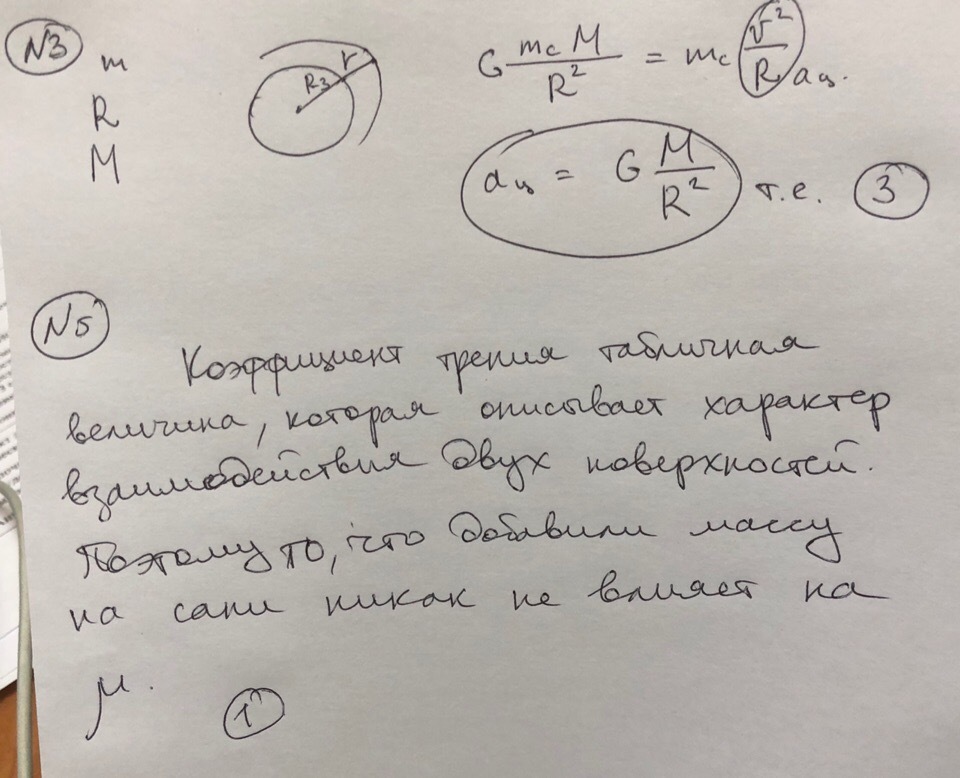 N3
m
R
M
R₃ r
G m_c M / R² = m_c v²/R a_ц.
a_ц = G M/R² т.е. 3
N5
Коэффициент трения табличная
величина, которая описывает характер
взаимодействия двух поверхностей.
Поэтому то, что добавили массу
на сани никак не влияет на
μ.
1